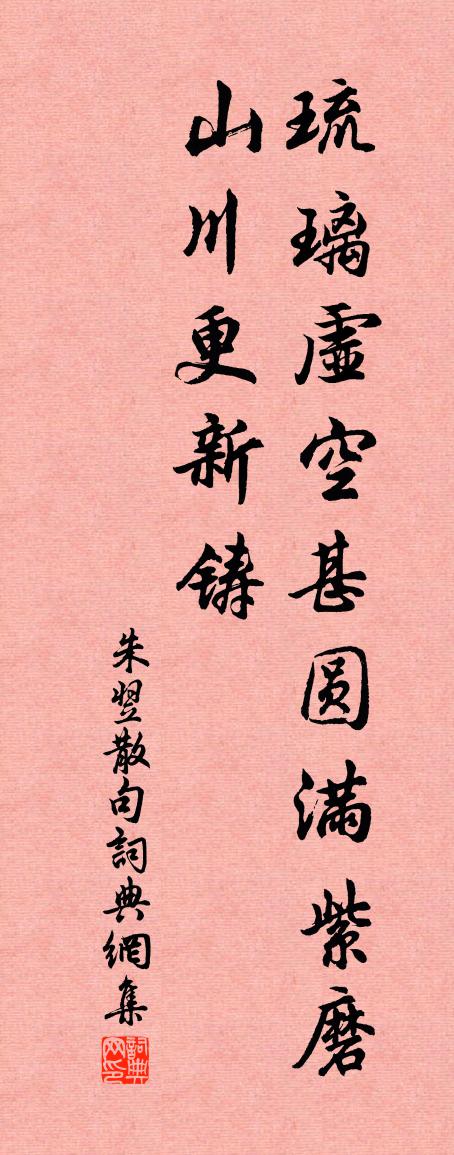 琉璃虚空甚圆满紫磨
山川更新铸
朱翌散句詞典網集
詞典网印